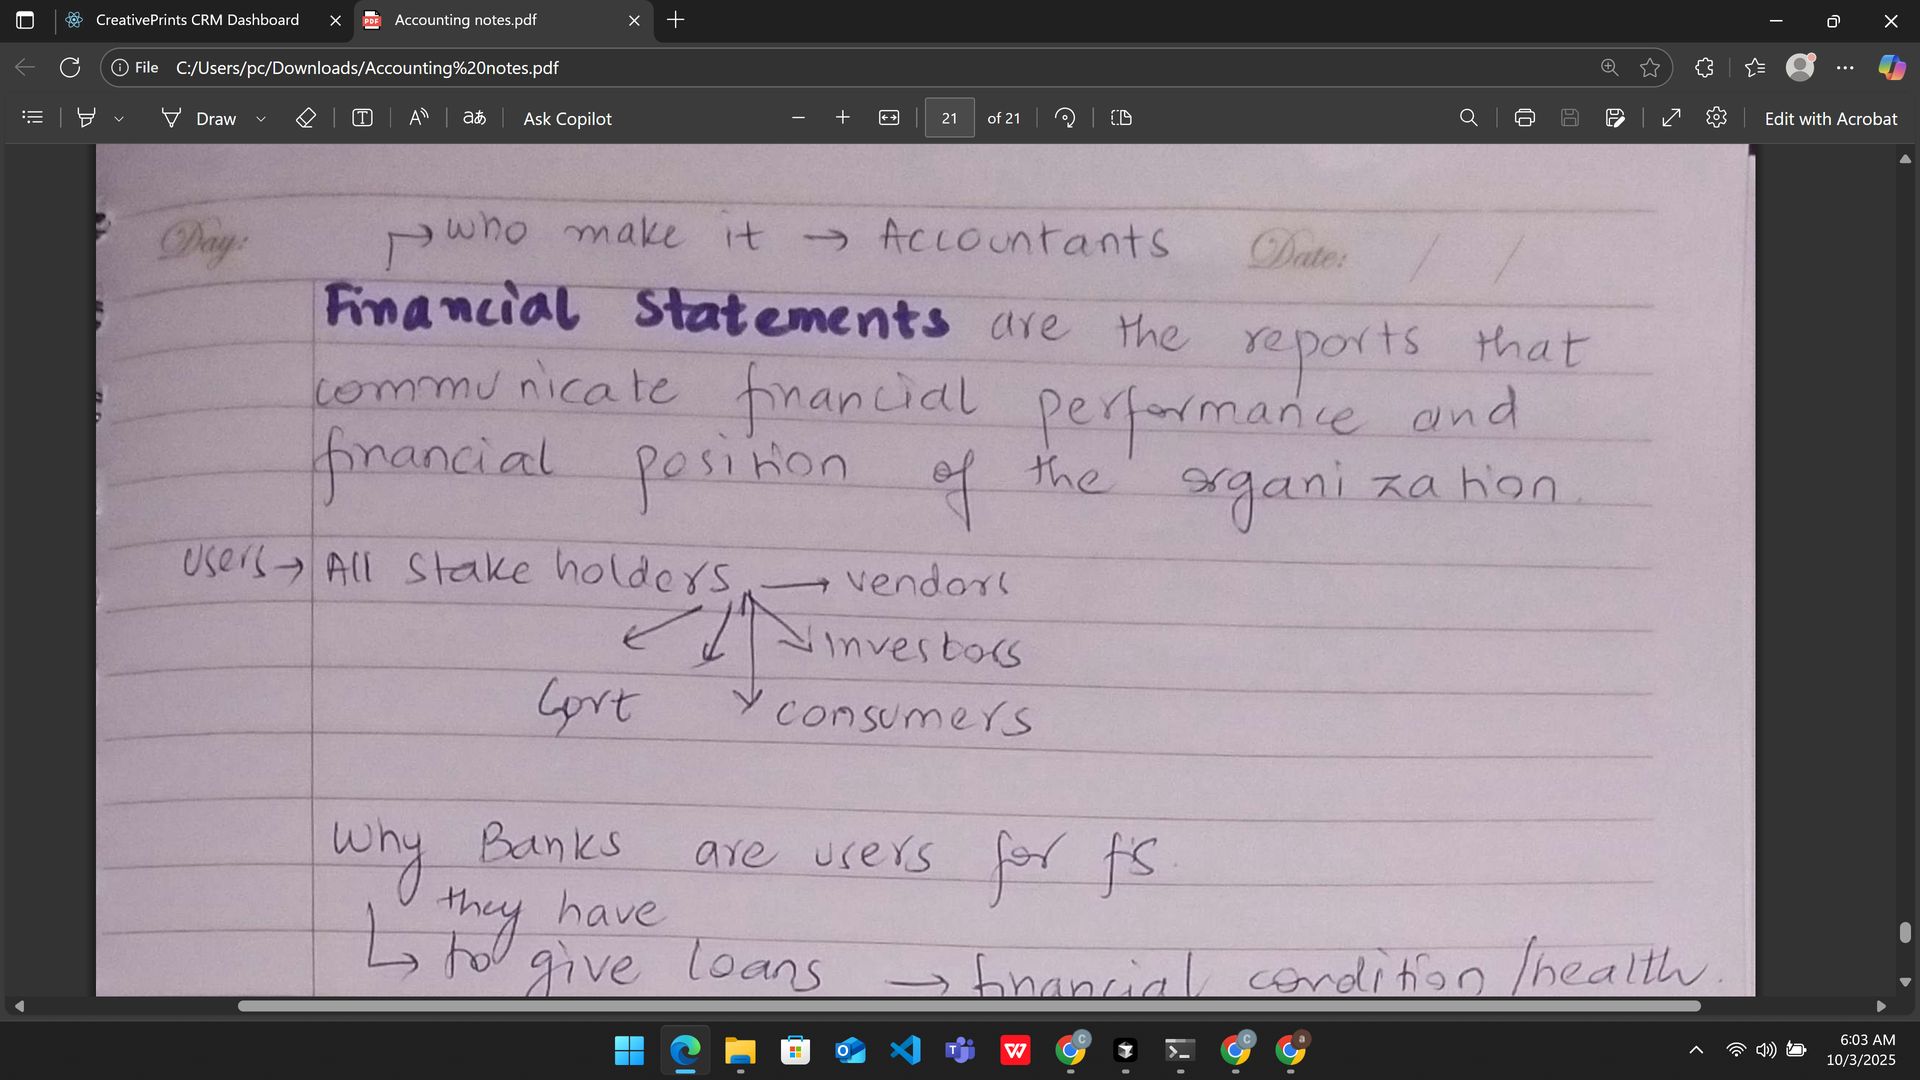 CreativePrints CRM Dashboard
Accounting notes.pdf
File C:/Users/pc/Downloads/Accounting%20notes.pdf
Draw
Ask Copilot
21 of 21
Edit with Acrobat
Day:
who make it → Accountants
Date: / /
Financial Statements are the reports that
communicate financial performance and
financial position of the organization.
Users → All Stake holders → vendors
investors
Govt
consumers
Why Banks are users for f's.
they have
to give loans → financial condition/health.
6:03 AM
10/3/2025